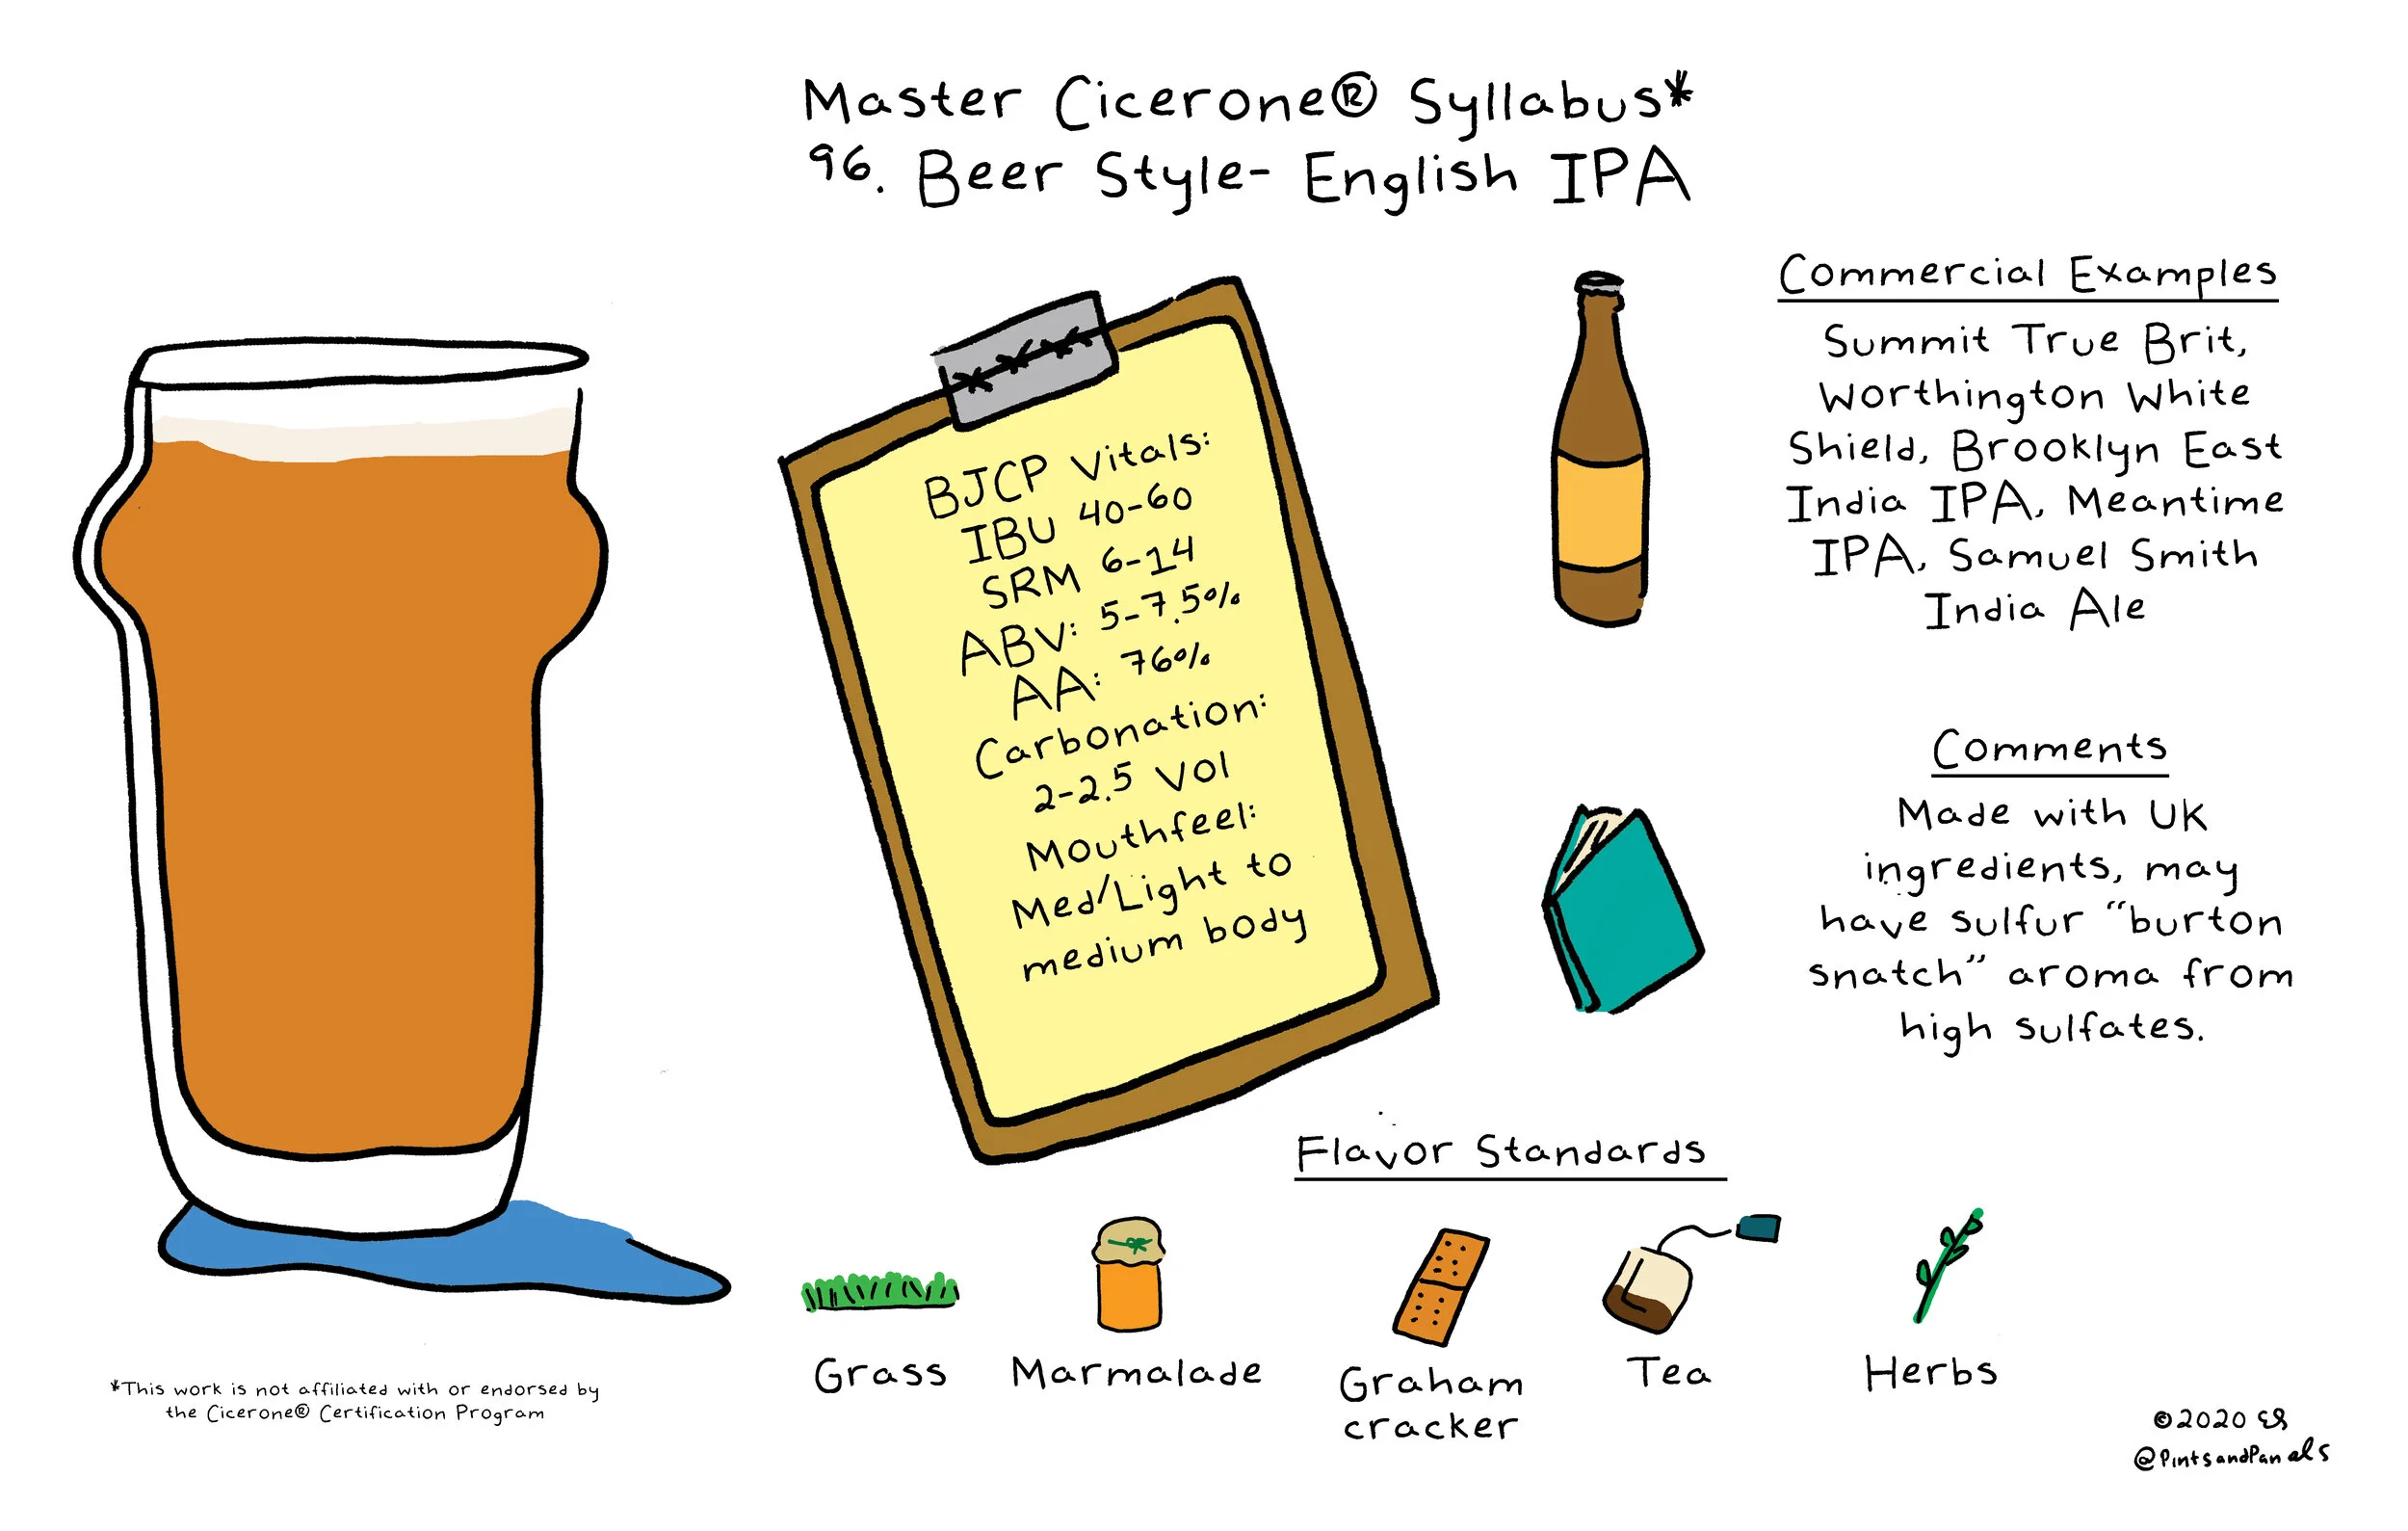 Master Cicerone® Syllabus*
96. Beer Style- English IPA
BJCP Vitals:
IBU 40-60
SRM 6-14
ABV: 5-7.5%
AA: 76%
Carbonation:
2-2.5 Vol
Mouthfeel:
Med/Light to
medium body
Commercial Examples
Summit True Brit,
Worthington White
Shield, Brooklyn East
India IPA, Meantime
IPA, Samuel Smith
India Ale
Comments
Made with UK
ingredients, may
have sulfur “burton
snatch” aroma from
high sulfates.
Flavor Standards
Grass
Marmalade
Graham
cracker
Tea
Herbs
*This work is not affiliated with or endorsed by
the Cicerone® Certification Program
©2020 ES
@PintsandPanels